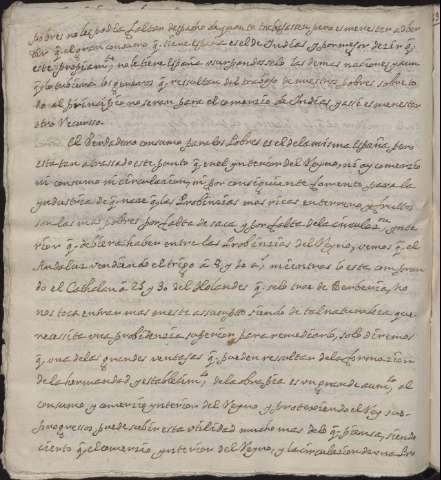 pobres no les podia faltar despacho de quanto trabaxasen, pero es menester adber
tir q.e el gran consumo q.e tiene españa es el de Indias, y por mejor dezir q.e
este propiam.te no le tiene españa usurpandoselo las demas naciones, y aun
q.e los generos q.e resultan del trabajo de nuestros pobres sobre to
do al principio no seran para el comercio de Indias, y assi es menester
otro Recurso.
El Verdadero consumo para los Pobres es el de la misma España, pero
esta tan atrasado este punto q.e en el ynterior del Reyno, no ay comercio
ni consumo ni circulacion, ni por consiguiente fomento, para la
yndustria de q.e nace q.e las Probincias mas ricas en terreno, y frutos
son las mas pobres por falta de saca, y por falta de la circulaz.on ynte
rior q.e debiera haber entre las Probincias del Reyno, vemos q.e el
Andaluz vendiendo el trigo a 8, y 10 r.s mientras lo esta compran
do el Cathalan a 28 y 30 del Holandes q.e selo trae de Berberia, no
nos toca entrar mas en este assumpto siendo de tal naturaleza que
necesita una probidencia superior para remediarlo, solo diremos
q.e una de las grandes ventajas q.e pueden resultar de la formacion
de la hermandad y establecim.to de la obra pia es un grande aum.to al
consumo, y comercio ynterior del Reyno, y protexiendo el Rey sus
progressos puede subir esta utilidad mucho mas delo q.e se piensa, siendo
cierto q.e el comercio ynterior del Reyno, y la circulacion de una Pro